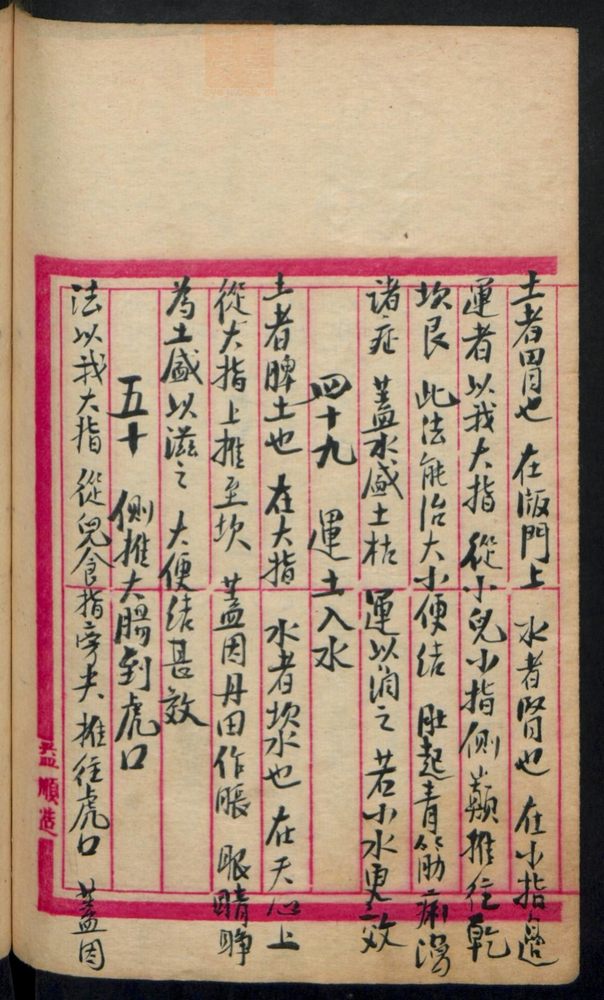 土者胃也 在版門上 水者腎也 在小指邊
運者以我大指 從小兒小指側巔推往乾
坎艮 此法能治大小便结 肚起青筋 痢瀉
诸症 蓋水盛土枯 運以润之 若小水更效
四十九 運土入水
土者脾土也 在大指 水者坎水也 在天心上
從大指上推至坎 蓋因丹田作脹 眼睛睁
為土盛以滋之 大便结甚效
五十 侧推大腸到虎口
法以我大指 從兒食指旁尖 推往虎口 蓋因
益順造